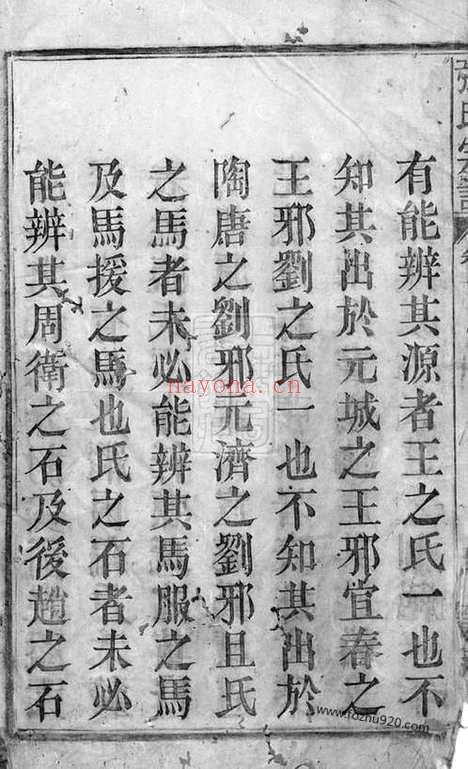 有能辨其源者王之氏一也不
知其出於元城之王邪宜春之
王邪劉之氏一也不知其出於
陶唐之劉邪元濟之劉邪且氏
之馬者未必能辨其馬服之馬
及馬援之馬也氏之石者未必
能辨其周衛之石及後趙之石
nayona.cn
www.fozhu920.com